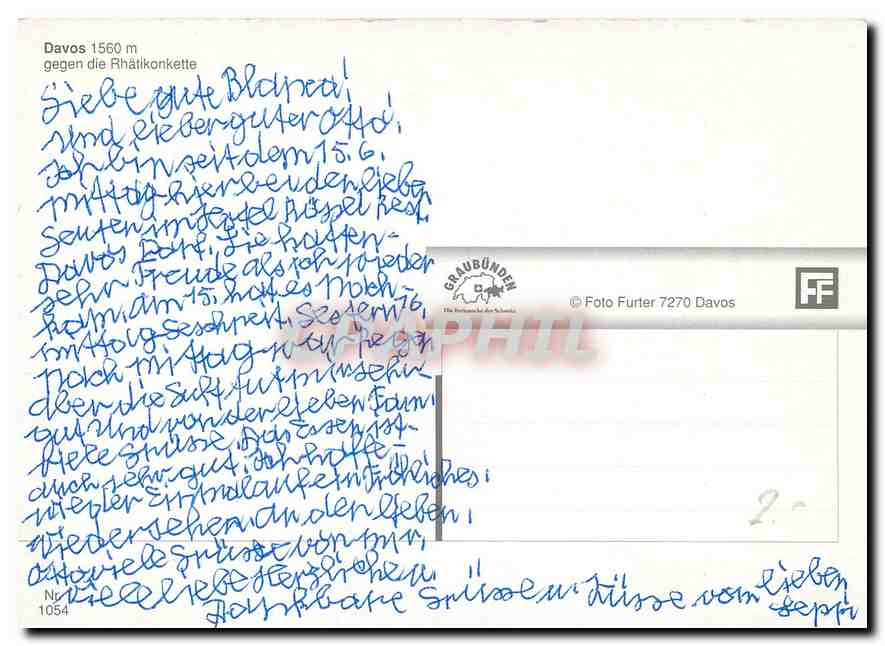 Davos 1560 m
gegen die Rhätikonkette
Liebe gute Blanca!
und lieber guter Otto!
Ich bin seit dem 15.6.
mittag hier bei den lieben
Leuten im Hotel Rössl Rest.
Davos Dorf. Sie hatten
sehr Freude als ich wieder
kam. am 15. hat es noch
mittag geschneit. Gestern 16.
noch mittag Regen
aber die Luft tut mir sehr
gut und von der lieben Fam.
viele Grüsse. Das Essen ist
auch sehr gut. Ich hoffe
wieder Einmal auf ein Fröhliches
wiedersehen. an den lieben
Otto viele Grüsse von mir
viele liebe Herzlichen
Dankbare Grüsse u Küsse vom lieben
Seppi
GRAUBÜNDEN
Die Ferienecke der Schweiz
© Foto Furter 7270 Davos
FF
DELCAMPHIL
2.-
Nr.
1054